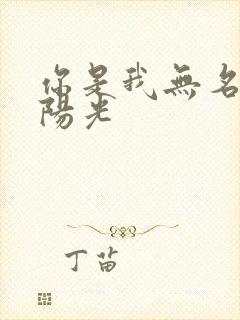 你是我無名
陽光
丁苗